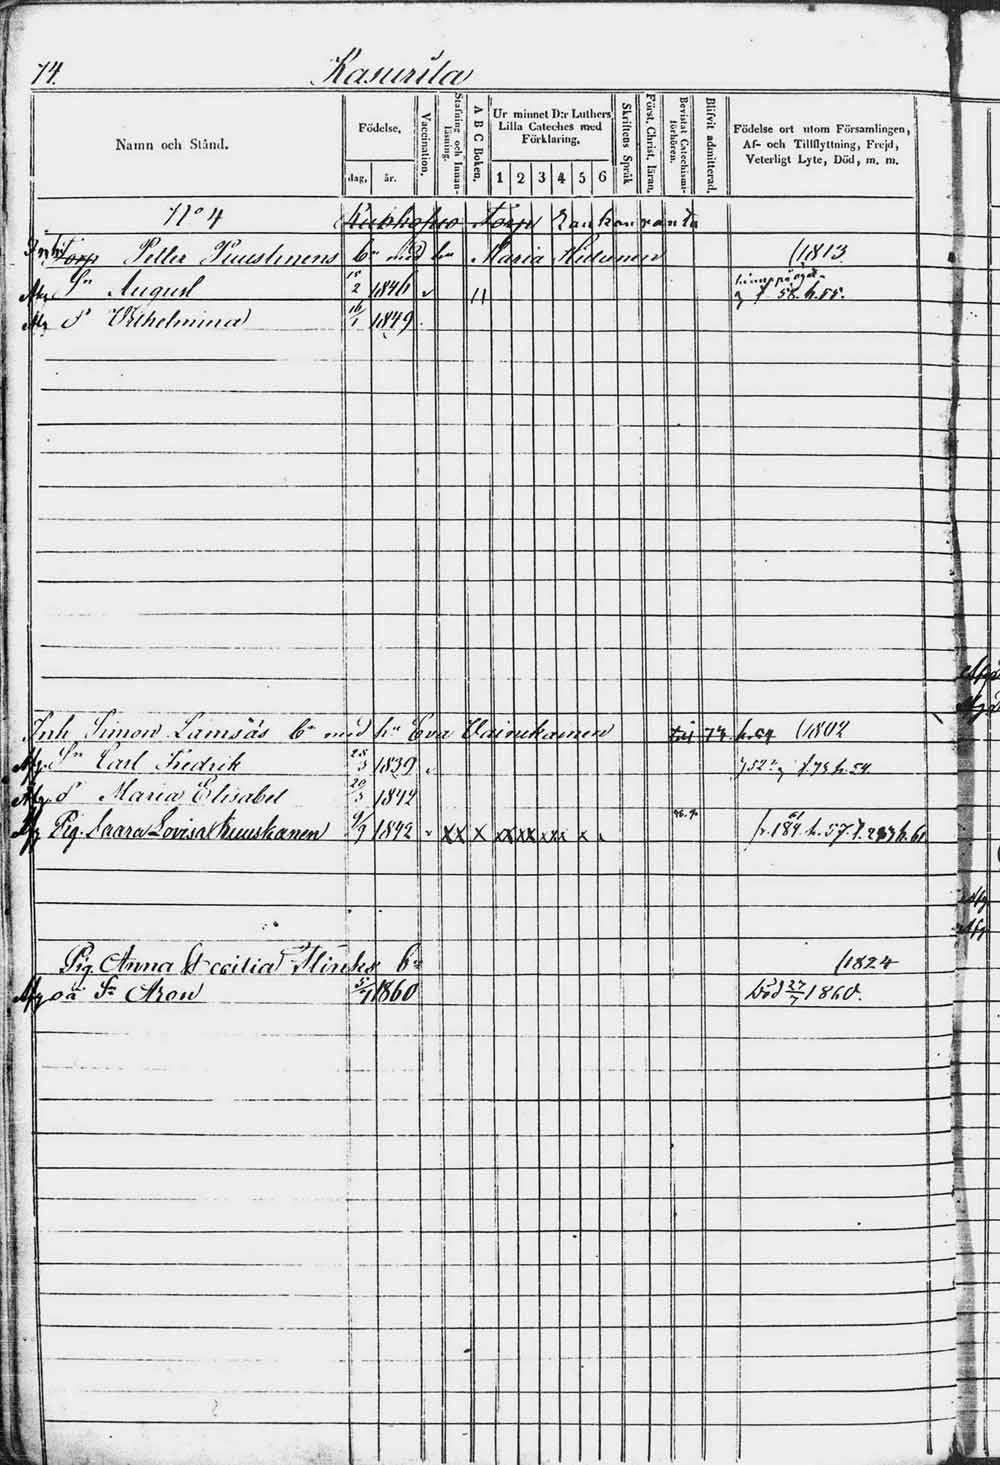 74. Kasurila
Namn och Stånd.
Födelse,
dag, år.
Vaccination.
Stafning och Innan-läsning.
A B C Boken.
Ur minnet D:r Luthers Lilla Cateches med Förklaring.
1 2 3 4 5 6
Skriftens Språk
Först. Christ. läran.
Bevistat Catechismi-förhören.
Blifvit admitterad.
Födelse ort utom Församlingen, Af- och Tillflyttning, Frejd, Veterligt Lyte, Död, m. m.
No 4 Torp Rauhanranta
Torp Petter Puustinens bn med hu Maria (1813
Afg Sn August 2 1846 58. h. 55.
Afg d Wilhelmina 16/1 1849
Inh Simon Lamsas bn med hu Eva Vainikainen 74 h. 64 (1802
Afg. Sn Carl Fredrik 28/3 1839 f. 73 h. 54.
Afg. d Maria Elisabet 20/3 1842
Afg Pig. Saara Lovisa Kuuskanen 9/9 1842 xx x xx xx xx x x fr. 184. h. 57. f. 233 h. 61.
Pig. Anna Cecilia Flinks bn (1824
Afg oä Sn Aron 5/7 1860 Död 27/7 1860.